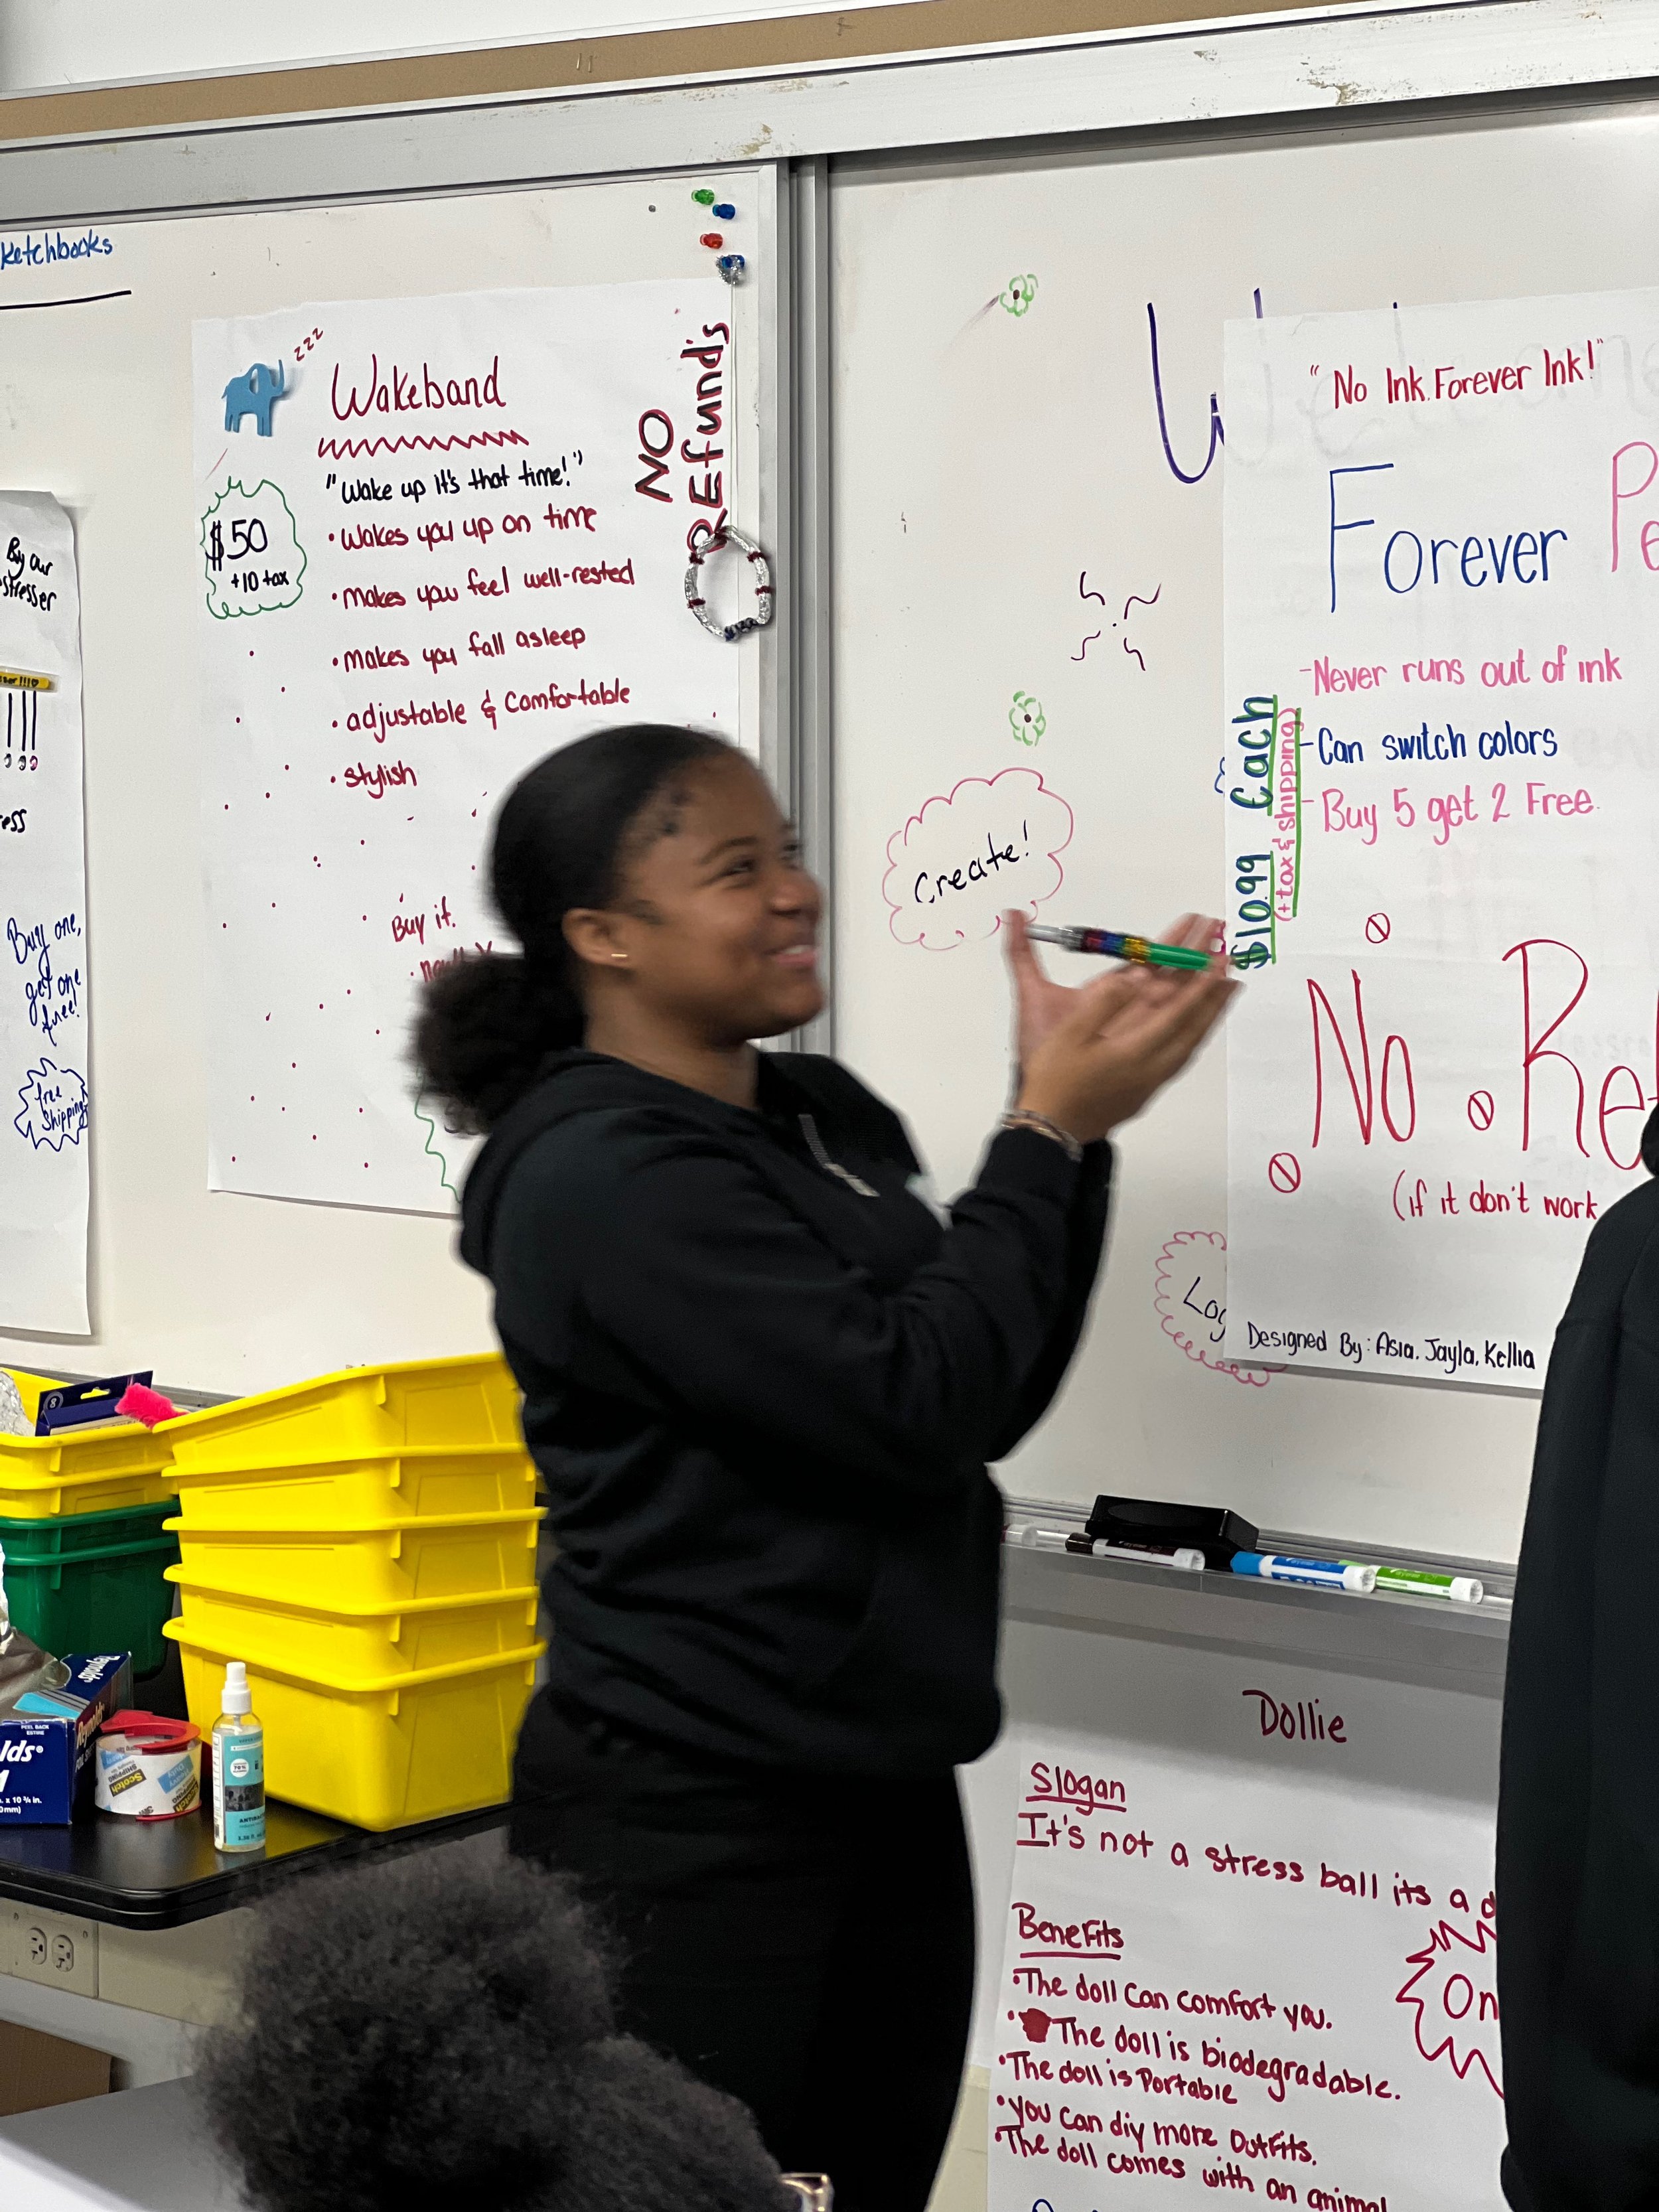 ketchbooks
Buy our
stresser
ess
Buy one,
get one
free!
free
Shipping
zzz
Wakeband
"Wake up It's that time!"
$50
+10 tax
• Wakes you up on time
• makes you feel well-rested
• makes you fall asleep
• adjustable & Comfortable
• stylish
Buy it.
NO
REfund's
Create!
"No Ink. Forever Ink!"
Forever Pe
-Never runs out of ink
-Can switch colors
-Buy 5 get 2 Free.
$10.99 Each
(+tax & shipping)
No Ref
(if it don't work
Log
Designed By: Asia, Jayla, Kellia
Dollie
Slogan
It's not a stress ball its a d
Benefits
•The doll Can comfort you.
• The doll is biodegradable.
•The doll is Portable
•you can diy more outfits.
•The doll comes with an animal
On
Reynolds
lds®
PEEL BACK
Scotch